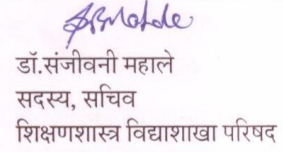 डॉ.संजीवनी महाले
सदस्य, सचिव
शिक्षणशास्त्र विद्याशाखा परिषद